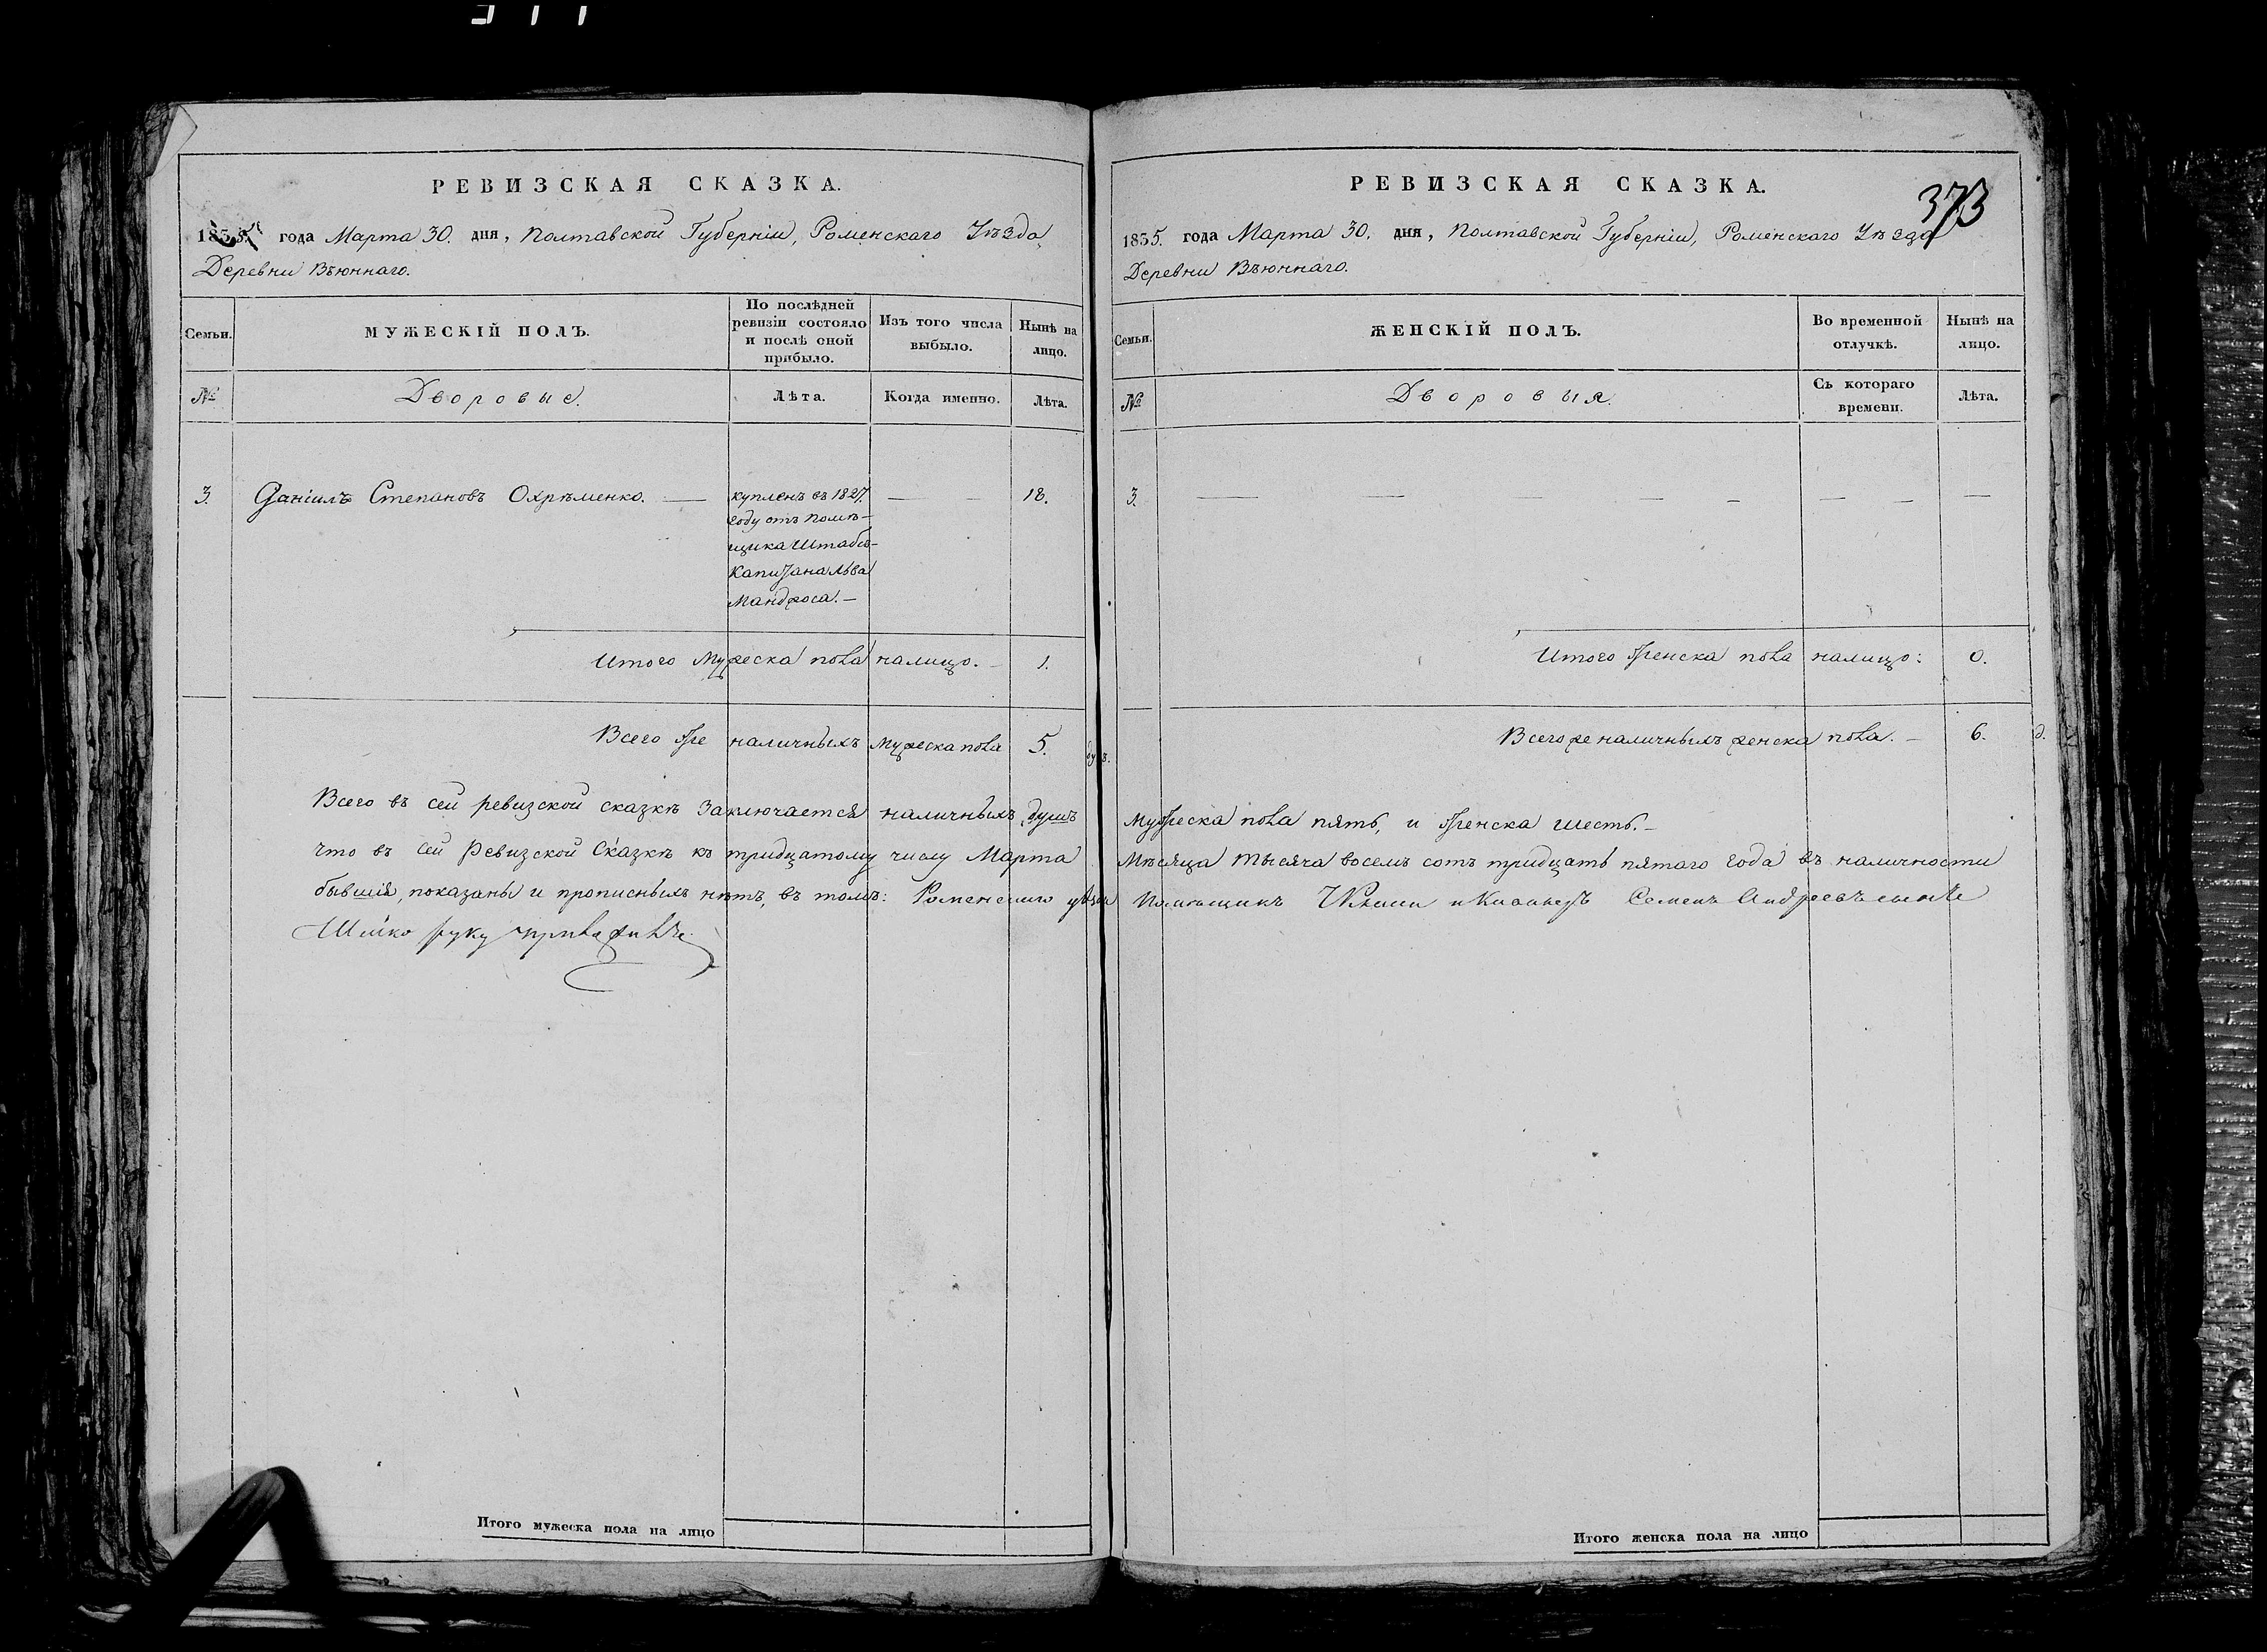 РЕВИЗСКАЯ СКАЗКА.
1835. года Марта 30. дня, Полтавской Губерніи, Роменскаго Уѣзда,
Деревни Вьюннаго.
Семьи.
МУЖЕСКІЙ ПОЛЪ.
По послѣдней
ревизіи состояло
и послѣ оной
прибыло.
Изъ того числа
выбыло.
Нынѣ на
лицо.
№
Дворовые.
Лѣта.
Когда именно.
Лѣта.
3. Даніилъ Степановъ Охрѣменко. — куплен въ 1827. — — 18.
году отъ помѣ-
щика Штабсъ-
Капитана Льва
Мандроса. —
Итого мужеска пола налицо. — 1.
Всего же наличныхъ мужеска пола 5.
Всего въ сей ревизской сказкѣ заключается наличныхъ душъ
что въ сей Ревизской Сказкѣ къ тридцатому числу Марта
бывшія, показаны и прописныхъ нѣтъ, въ томъ: Роменскаго
руку приложилъ
Итого мужеска пола на лицо
РЕВИЗСКАЯ СКАЗКА.
373
1835. года Марта 30. дня, Полтавской Губерніи, Роменскаго Уѣзда
Деревни Вьюннаго.
Семьи.
ЖЕНСКІЙ ПОЛЪ.
Во временной
отлучкѣ.
Нынѣ на
лицо.
№
Дворовыя.
Съ котораго
времени.
Лѣта.
3. — — — — — — —
Итого женска пола налицо: 0.
Всего же наличныхъ женска пола. — 6. д.
мужеска пола пять, и женска шесть. —
Мѣсяца тысяча восемь сотъ тридцать пятаго года въ наличности
Помѣщикъ Семенъ Андреевъ сынъ
Итого женска пола на лицо